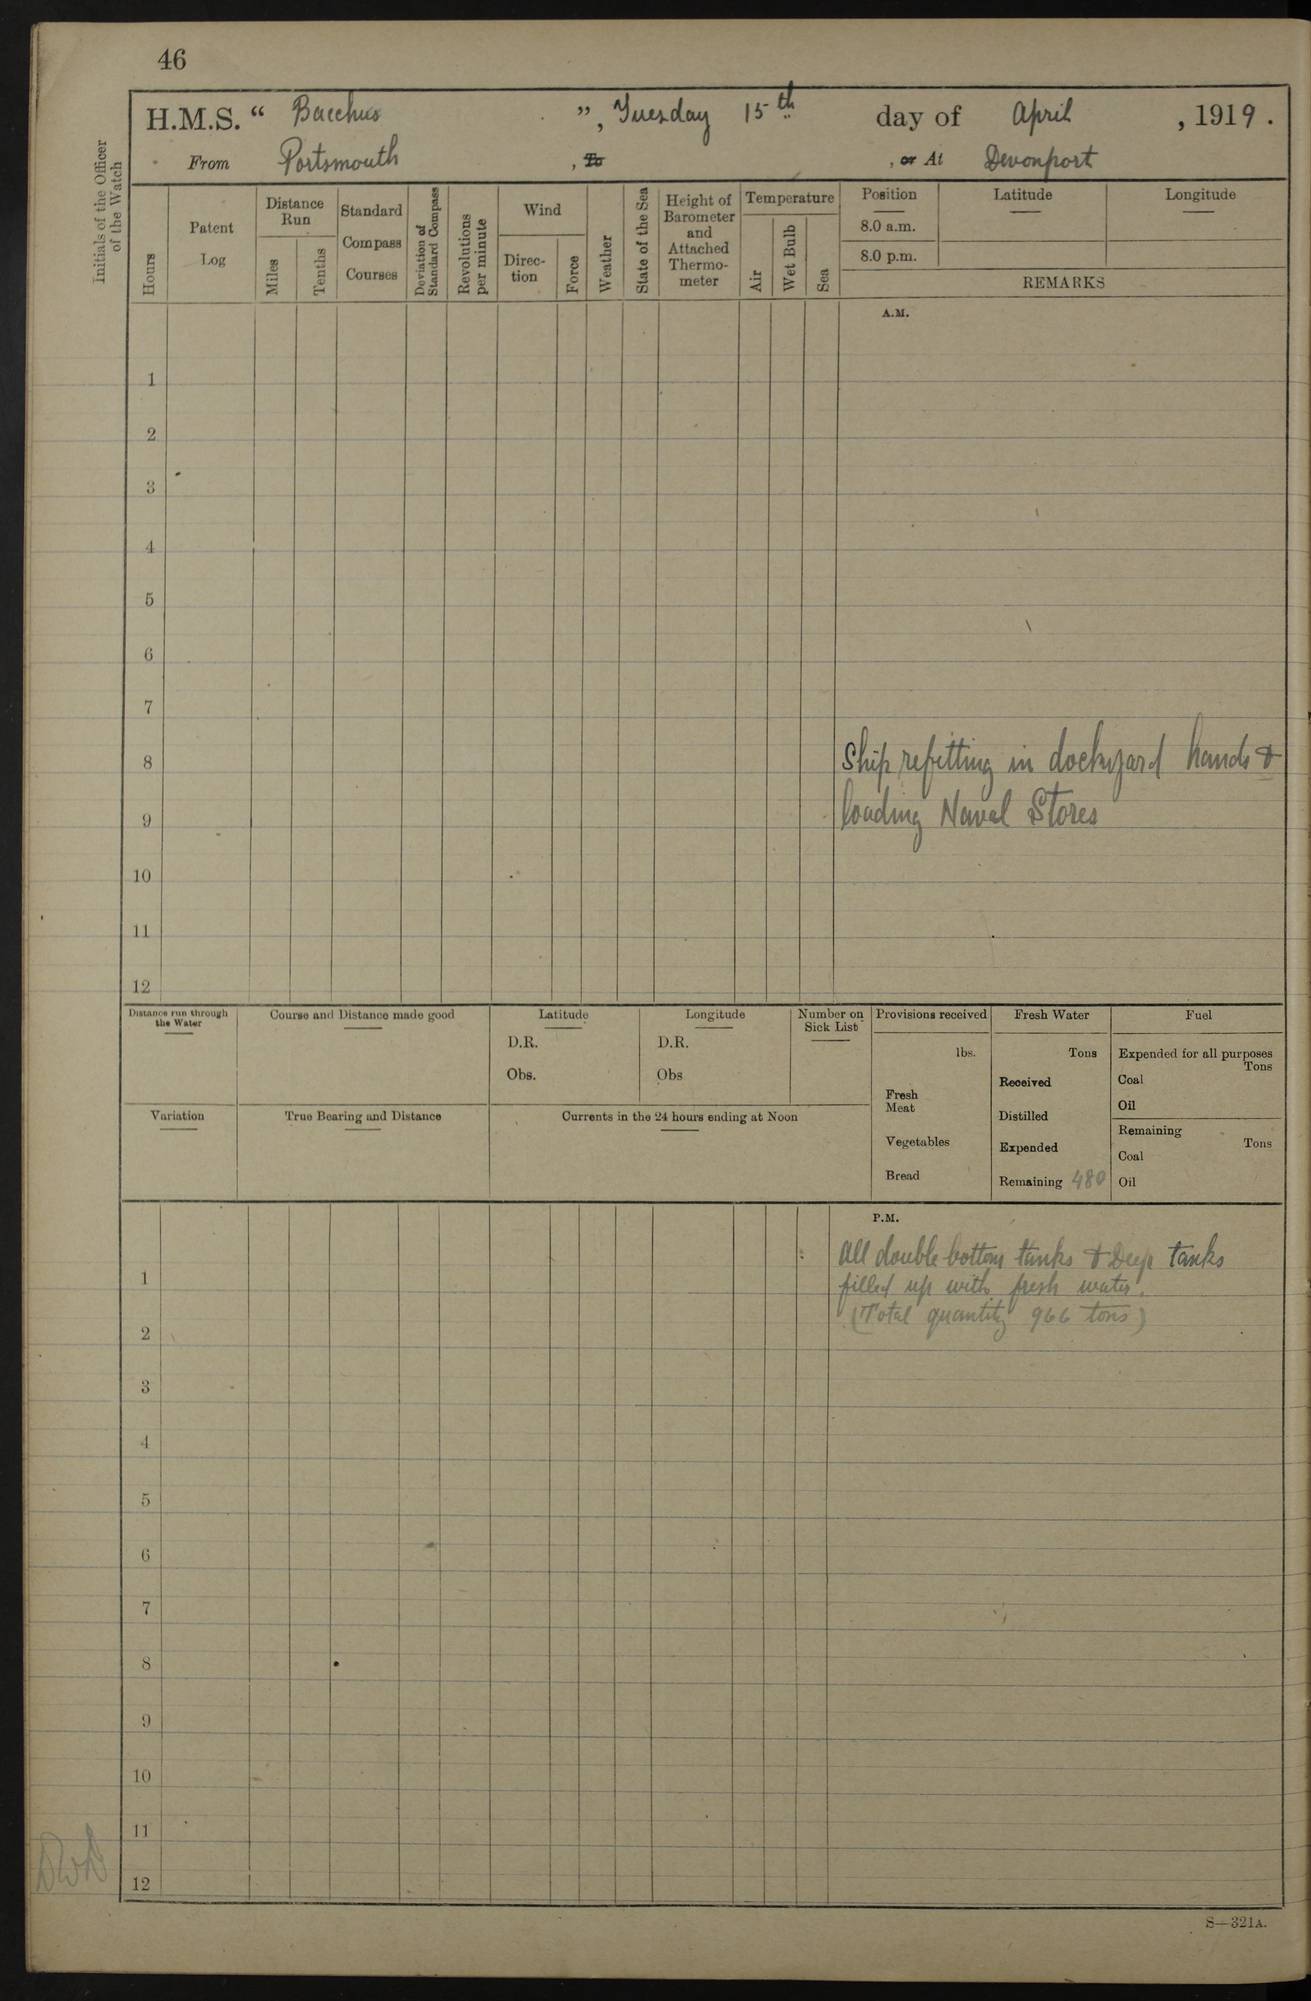 46
H.M.S. “ Bacchus ”, Tuesday 15th day of April, 1919.
From Portsmouth, To , or At Devonport
Initials of the Officer of the Watch
Hours
Patent Log
Distance Run
Miles
Tenths
Standard Compass Courses
Deviation of Standard Compass
Revolutions per minute
Wind
Direction
Force
Weather
State of the Sea
Height of Barometer and Attached Thermometer
Temperature
Air
Wet Bulb
Sea
Position Latitude Longitude
8.0 a.m.
8.0 p.m.
REMARKS
A.M.
1
2
3
4
5
6
7
8 Ship refitting in dockyard hands &
9 loading Naval Stores
10
11
12
Distance run through the Water
Course and Distance made good
Latitude
D.R.
Obs.
Longitude
D.R.
Obs
Number on Sick List
Variation
True Bearing and Distance
Currents in the 24 hours ending at Noon
Provisions received
lbs.
Fresh Meat
Vegetables
Bread
Fresh Water
Tons
Received
Distilled
Expended
Remaining 480
Fuel
Expended for all purposes
Tons
Coal
Oil
Remaining
Tons
Coal
Oil
P.M.
All double bottom tanks & Deep tanks
1 filled up with fresh water.
(Total quantity 966 tons)
2
3
4
5
6
7
8
9
10
11
12
S—321A.